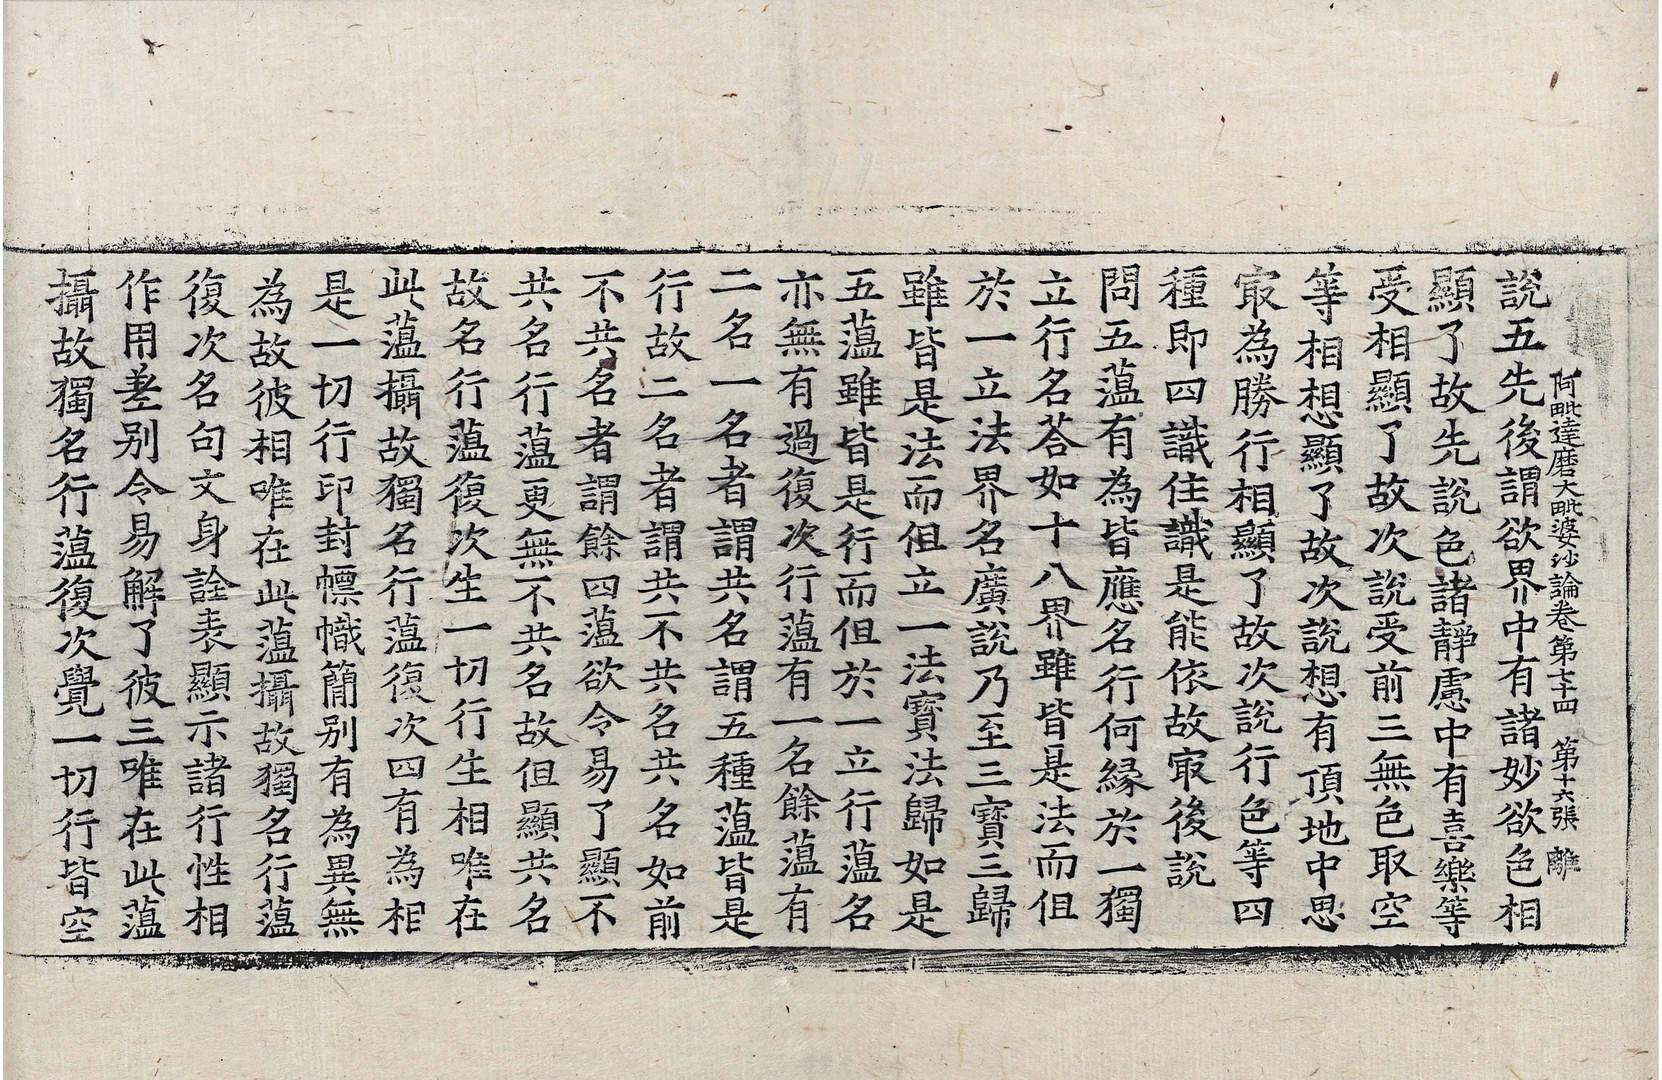 阿毗達磨大毗婆沙論卷第七十四 第十六張 離
說五先後謂欲界中有諸妙欲色相
顯了故先說色諸靜慮中有喜樂等
受相顯了故次說受前三無色取空
等相想顯了故次說想有頂地中思
㝡為勝行相顯了故次說行色等四
種即四識住識是能依故㝡後說
問五薀有為皆應名行何緣於一獨
立行名荅如十八界雖皆是法而但
於一立法界名廣說乃至三寶三歸
雖皆是法而但立一法寶法歸如是
五薀雖皆是行而但於一立行薀名
亦無有過復次行薀有一名餘薀有
二名一名者謂共名謂五種薀皆是
行故二名者謂共不共名共名如前
不共名者謂餘四薀欲令易了顯不
共名行薀更無不共名故但顯共名
故名行薀復次生一切行生相唯在
此薀攝故獨名行薀復次四有為相
是一切行印封幖幟簡別有為異無
為故彼相唯在此薀攝故獨名行薀
復次名句文身詮表顯示諸行性相
作用差別令易解了彼三唯在此薀
攝故獨名行薀復次覺一切行皆空